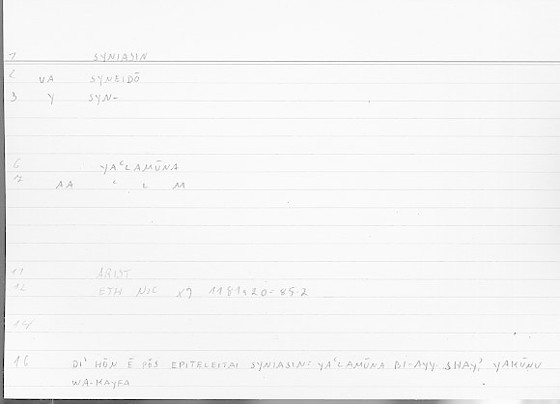 1 SYNIASIN
2 VA SYNEIDŌ
3 Y SYN-
6 YAʿLAMŪNA
7 AA ʿ L M
11 ARIST
12 ETH NIC X9 1181a20-85.2
14
16 DI' HŌN Ē PŌS EPITELEITAI SYNIASIN= YAʿLAMŪNA BI-AYY SHAYʾ YAKŪNU
WA-KAYFA